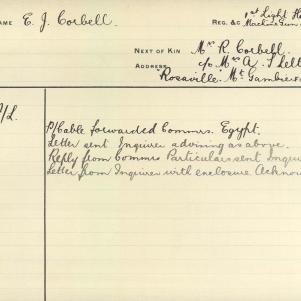 NAME E. J. Corbell.
REG. &C 1st Light Ho
Machine Gun
NEXT OF KIN Mr R. Corbell.
ADDRESS c/o Mrs A. J Lett
"Rosaville" Mt Gambier
P/Cable forwarded Commrs. Egypt.
Letter sent Inquirer advising as above.
Reply from Commrs Particulars sent Inqui
Letter from Inquirer with enclosure Acknow